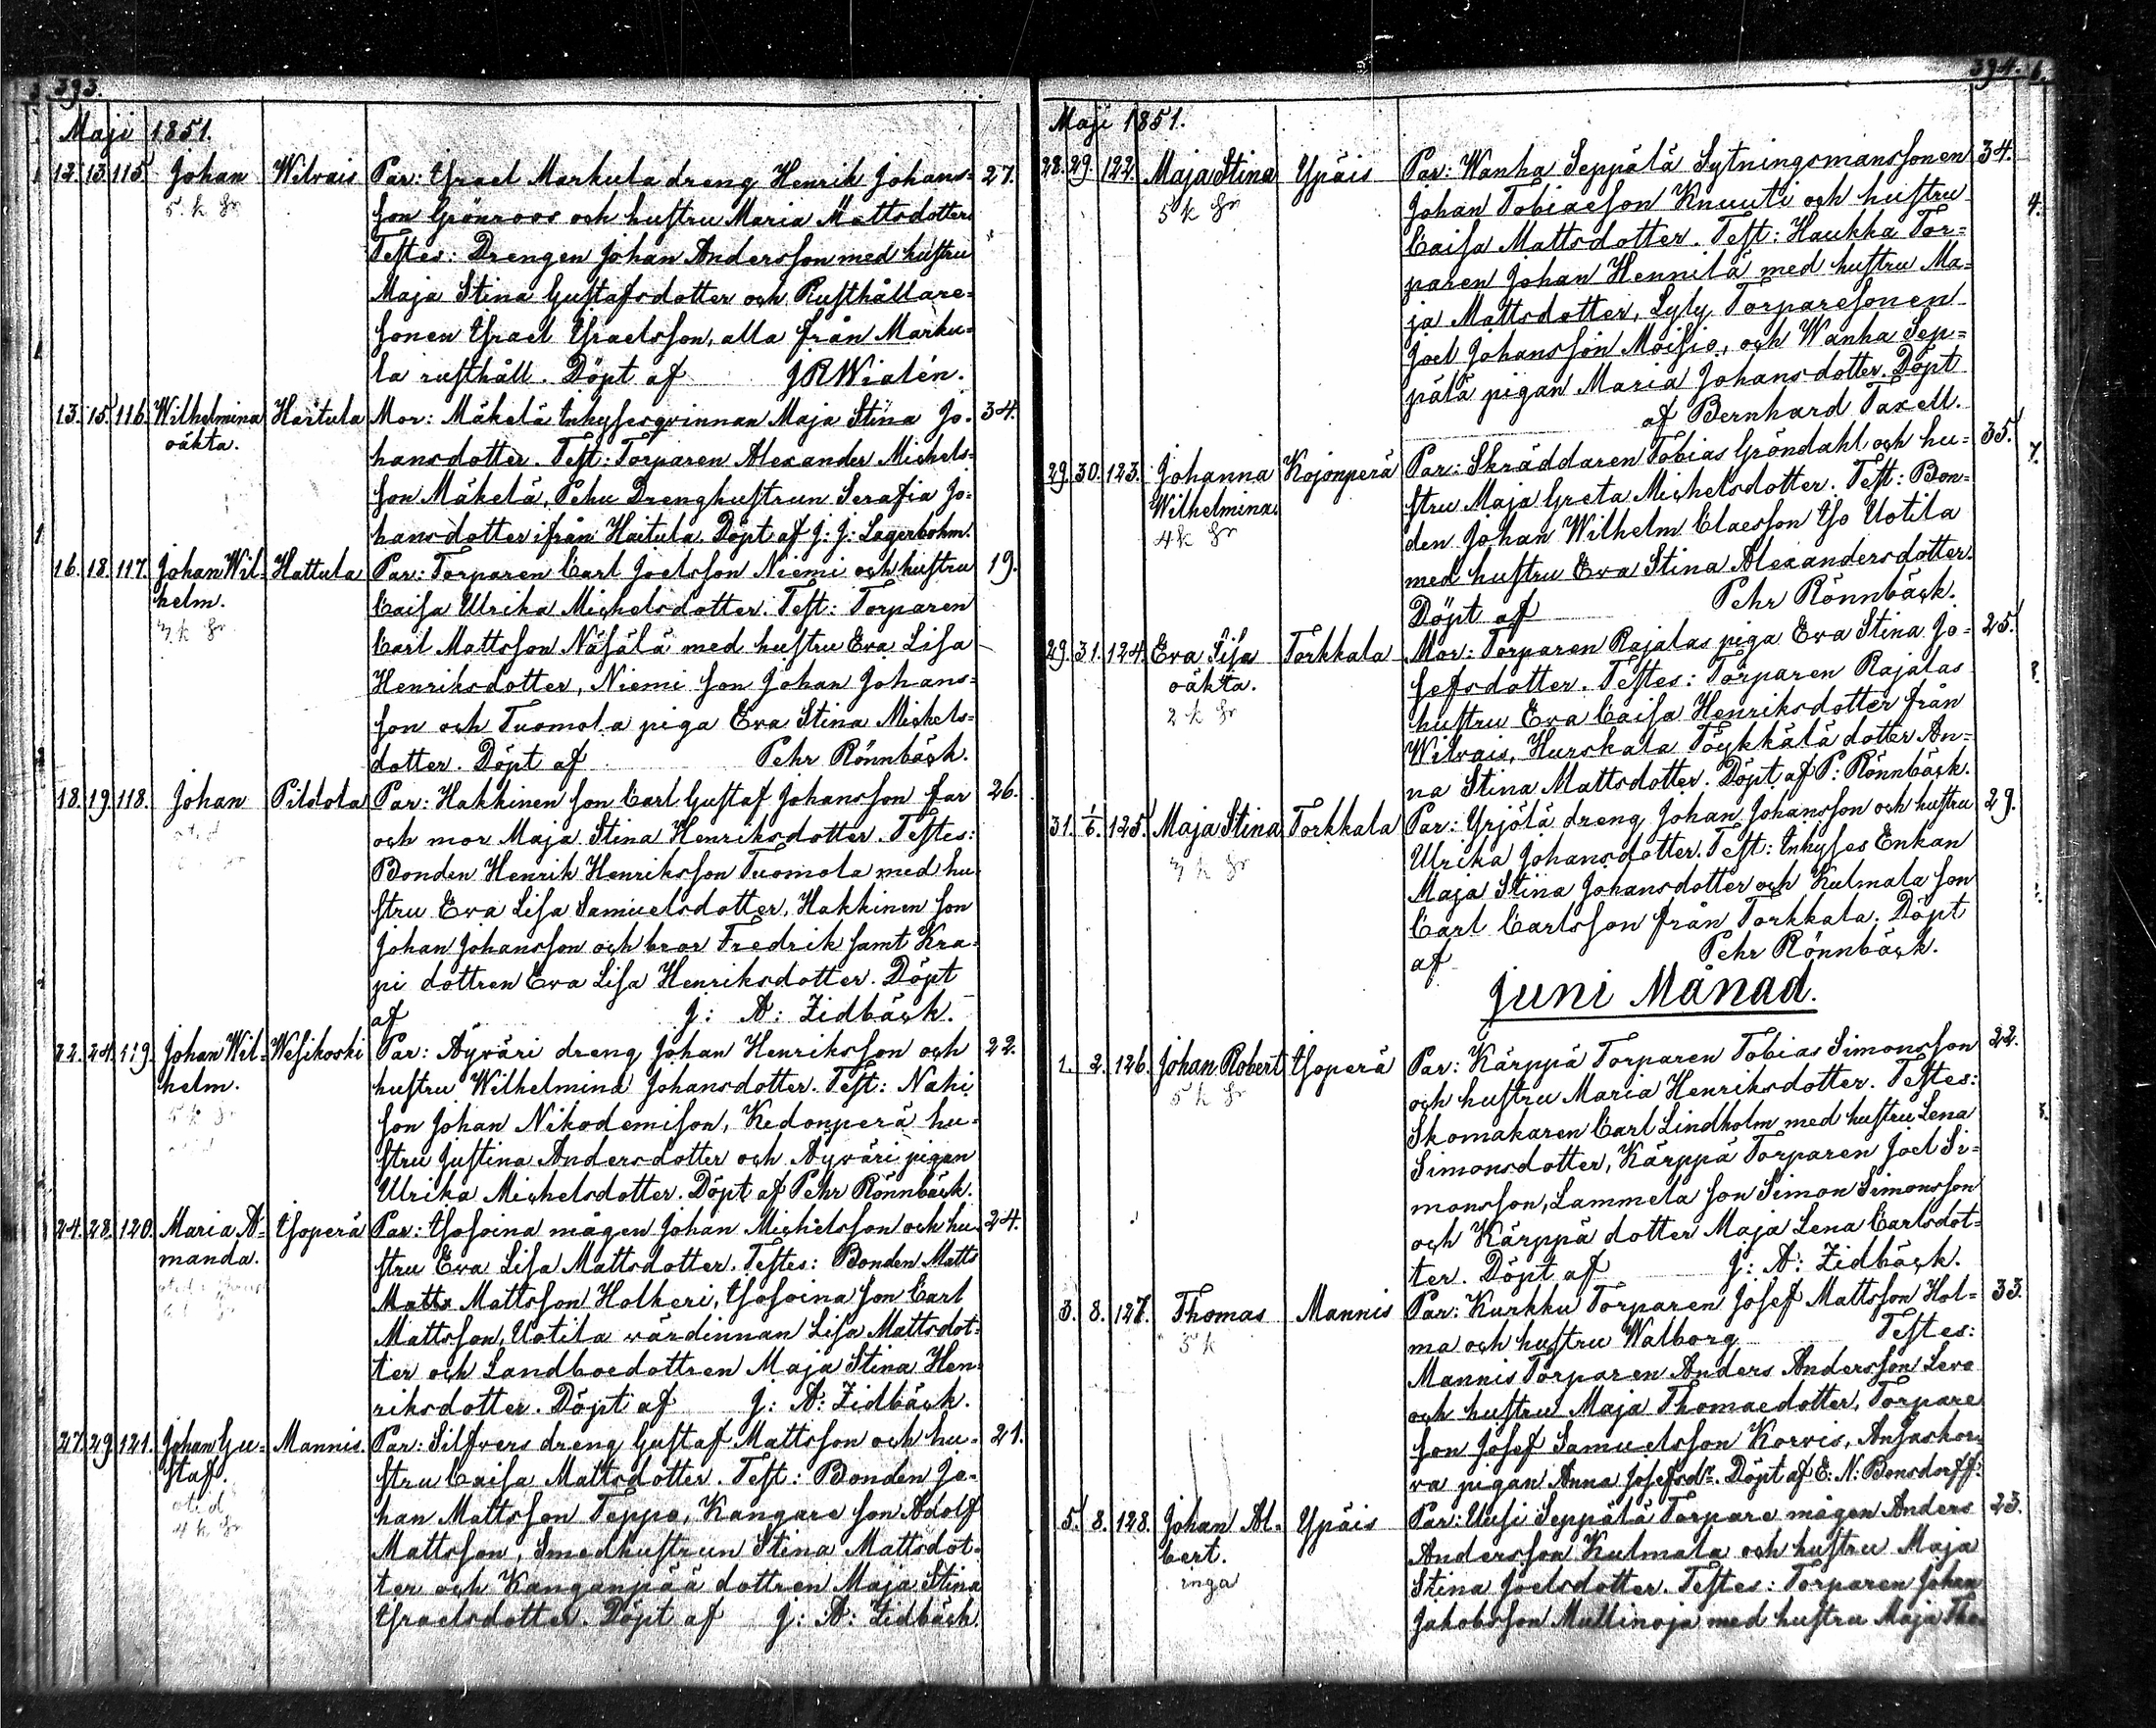 393.
Maji 1851.
12. 13. 115. Johan Wilvais Par: Israel Markula dreng Henrik Johans= 27.
5 k sr son Grönroos och hustru Maria Mattsdotter
Testes: Drengen Johan Andersson med hustru
Maja Stina Gustafsdotter och Rusthållare=
sonen Israel Israelsson, alla från Marku=
la rusthåll. Döpt af JRWialén.
13. 15. 116. Wilhelmina Haitula Mor: Mäkelä Inhysesqvinnan Maja Stina Jo= 34.
oäkta. hansdotter. Test: Torparen Alexander Michels=
son Mäkelä, Pehu Drenghustrun Serafia Jo=
hansdotter ifrån Haitula. Döpt af J: J: Lagerbohm.
16. 18. 117. Johan Wil= Hattula Par: Torparen Carl Joelsson Niemi och hustru 19.
helm. Caisa Ulrika Michelsdotter. Test: Torparen
3 k sr Carl Mattsson Näsälä med hustru Eva Lisa
Henriksdotter, Niemi son Johan Johans=
son och Tuomola piga Eva Stina Michels=
dotter. Döpt af Pehr Rönnbäck.
18. 19. 118. Johan Pildola Par: Hakkinen son Carl Gustaf Johansson far 26.
och mor Maja Stina Henriksdotter. Testes:
Bonden Henrik Henriksson Tuomola med hu=
stru Eva Lisa Samuelsdotter, Hakkinen son
Johan Johansson och bror Fredrik samt Kra=
pi dottren Eva Lisa Henriksdotter. Döpt
af J: A: Zidbäck.
22. 24. 119. Johan Wil= Wesikoski Par: Äyväri dreng Johan Henriksson och 22.
helm. hustru Wilhelmina Johansdotter. Test: Nahi
5 k sr son Johan Nikodemison, Kedonperä hu=
stru Justina Andersdotter och Äyväri pigan
Ulrika Michelsdotter. Döpt af Pehr Rönnbäck.
24. 28. 120. Maria A= Isoperä Par: Isosoina mågen Johan Michelsson och hu= 24.
manda. stru Eva Lisa Mattsdotter. Testes: Bonden Matts
Matts Mattsson Holkeri, Isosoina son Carl
Mattsson, Uotila värdinnan Lisa Mattsdot=
ter och Landboedottren Maja Stina Hen=
riksdotter. Döpt af J: A: Zidbäck.
27. 29. 121. Johan Gu= Mannis. Par: Silfvers dreng Gustaf Mattsson och hu= 21.
staf. stru Caisa Mattsdotter. Test: Bonden Jo=
4 k sr han Mattsson Teppo, Kangare son Adolf
Mattsson, Smedhustrun Stina Mattsdot=
ter och Kanganpää dottren Maja Stina
Israelsdotter. Döpt af J: A: Zidbäck.
394.
Maji 1851.
28. 29. 122. Maja Stina Ypäis Par: Wanha Seppälä Sytningsmanssonen 34.
5 k sr Johan Tobiaesson Knuuti och hustru
Caisa Mattsdotter. Test: Haukka Tor=
paren Johan Hennilä med hustru Ma=
ja Mattsdotter, Lyly Torparesonen
Joel Johansson Moisio, och Wanha Sep=
pälä pigan Maria Johansdotter. Döpt
af Bernhard Taxell.
29. 30. 123. Johanna Kojonperä Par: Skräddaren Tobias Gröndahl och hu= 35.
Wilhelmina. stru Maja Greta Michelsdotter. Test: Bon=
4 k sr den Johan Wilhelm Claesson Iso Uotila
med hustru Eva Stina Alexandersdotter.
Döpt af Pehr Rönnbäck.
29. 31. 124. Eva Lisa Torkkala Mor: Torparen Rajalas piga Eva Stina Jo= 25.
oäkta. sefsdotter. Testes: Torparen Rajalas
2 k sr hustru Eva Caisa Henriksdotter från
Wilvais, Hurskala Töykkälä dotter An=
na Stina Mattsdotter. Döpt af P: Rönnbäck.
31. 1/6. 125. Maja Stina Torkkala Par: Yrjölä dreng Johan Johansson och hustru 29.
3 k sr Ulrika Johansdotter. Test: Inhyses Enkan
Maja Stina Johansdotter och Kulmala son
Carl Carlsson från Torkkala. Döpt
af Pehr Rönnbäck.
Juni Månad.
1. 2. 126. Johan Robert Isoperä Par: Kärppä Torparen Tobias Simonsson 22.
5 k sr och hustru Maria Henriksdotter. Testes:
Skomakaren Carl Lindholm med hustru Lena
Simonsdotter, Kärppä Torparen Joel Si=
monsson, Lammela son Simon Simonsson
och Kärppä dotter Maja Lena Carlsdot=
ter. Döpt af J: A: Zidbäck.
3. 8. 127. Thomas Mannis Par: Kurkku Torparen Josef Mattsson Hol= 33.
5 k ma och hustru Walborg Testes:
Mannis Torparen Anders Andersson Levo
och hustru Maja Thomaedotter, Torpare
son Josef Samuelsson Korvis, Ansaskor=
va pigan Anna Josefsdr. Döpt af E: N: Bonsdorff.
5. 8. 128. Johan Al= Ypäis Par: Uusi Seppälä Torpare mågen Anders 23.
bert. Andersson Kulmala och hustru Maja
inga Stina Joelsdotter. Testes: Torparen Johan
Jakobsson Mullinoja med hustru Maja Tho=